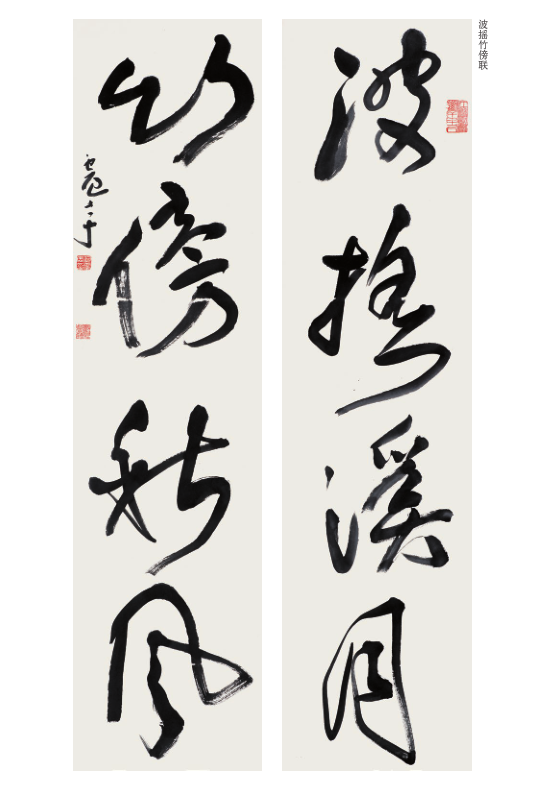 波摇竹傍联
波摇溪月
竹傍秋风